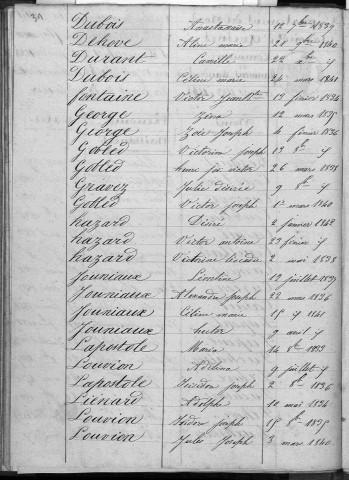 Dubois Anastasie 12 1839
Dehove Aline marie 21 7bre 1840
Durant Camille 22 a y
Dubois Céline marie 24 mars 1841
fontaine Victor 19 février 1834
George Zéna 12 mars 1835
George Zoé Joseph 4 février 1836
Gobled Victorine Joseph 19 8bre y
Gobled henri victor 26 mars 1838
Gravez Julie désirée 9 8bre y
Gobled Victor Joseph 1er mars 1840
hazard Désiré 2 janvier 1842
hazard Victor antoine 23 février y
hazard Victorine 2 mai 1838
Jouniaux Léontine 19 juillet
Jouniaux Alexandre Joseph 22 mars 1836
Jouniaux Céline marie 15 y 1841
Jouniaux hector 9 avril y
Lapostole Maria 14 8bre
Louvion Adelina 9 juillet y
Lapostole joseph 2 8bre 1836
Liénard Adolphe 10 mai 1834
Louvion Isidor joseph 15 8bre 1835
Louvion Jules Joseph 3 mars 1840